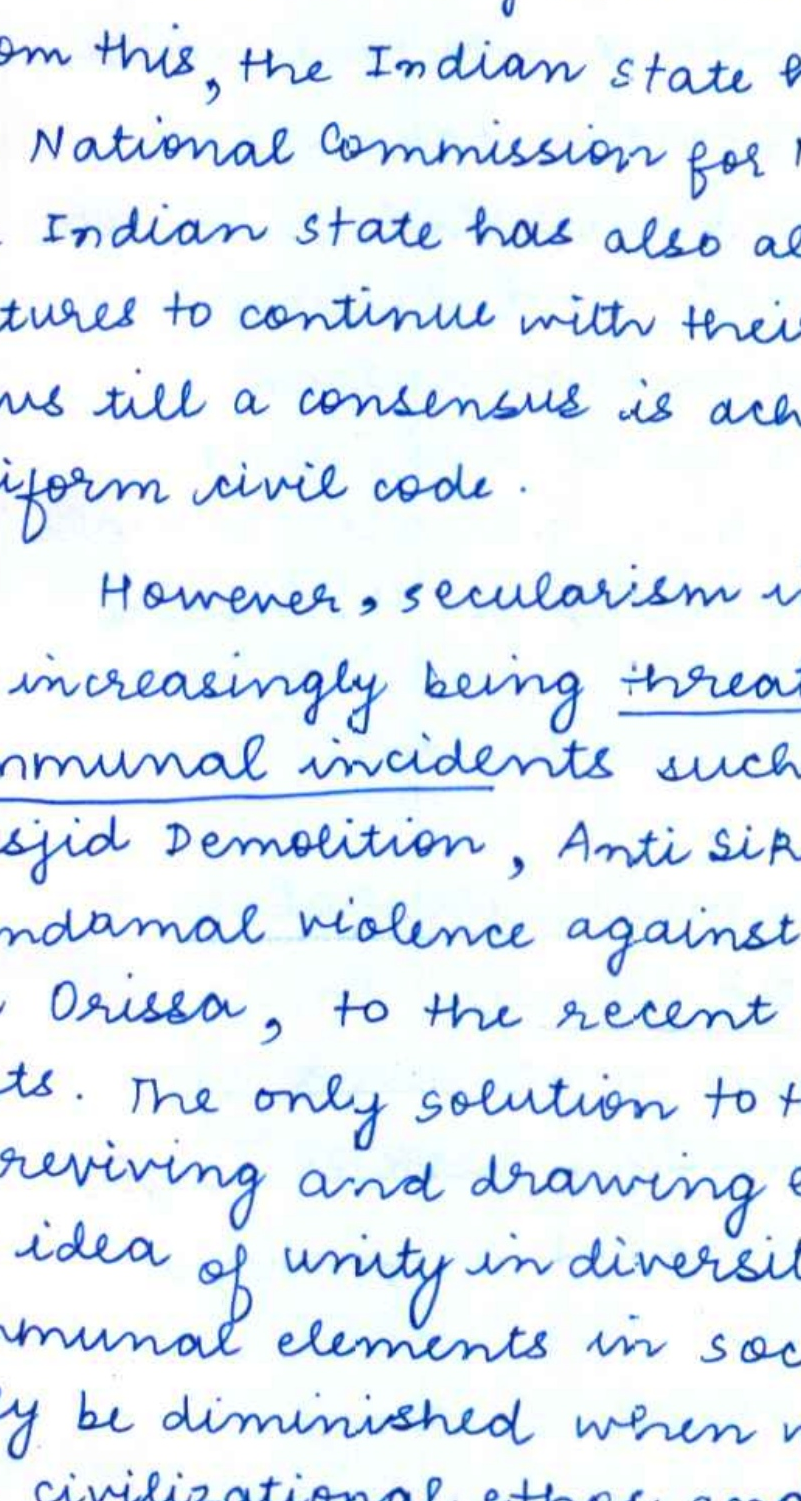 om this, the Indian state h
National Commission for
Indian state has also al
tures to continue with their
us till a consensus is ach
iform civil code.
However, secularism i
increasingly being threat
mmunal incidents such
sjid Demolition, Anti Sik
ndamal violence against
Orissa, to the recent
ts. The only solution to t
reviving and drawing e
idea of unity in diversit
mmunal elements in soc
ly be diminished when
civilizational ethos and